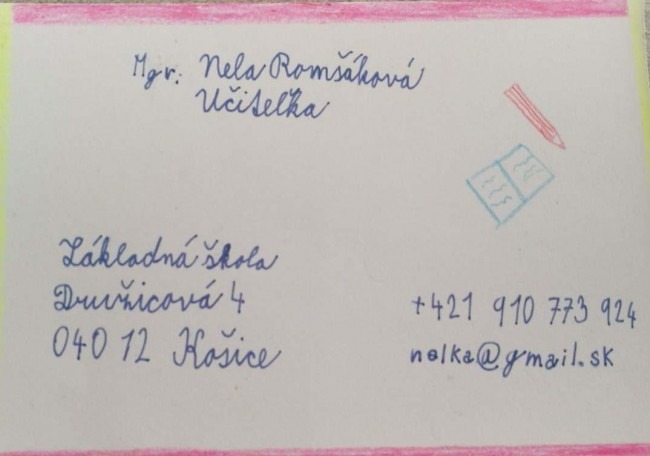 Mgr. Nela Romšáková
Učiteľka
Základná škola
Družicová 4
040 12 Košice
+421 910 773 924
nelka@gmail.sk